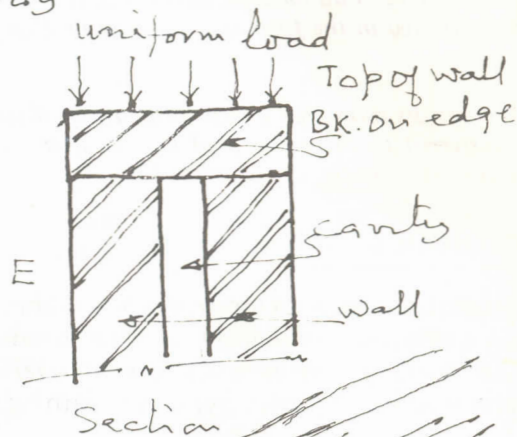 uniform load
Top of wall
BK. on edge
cavity
E
wall
Section